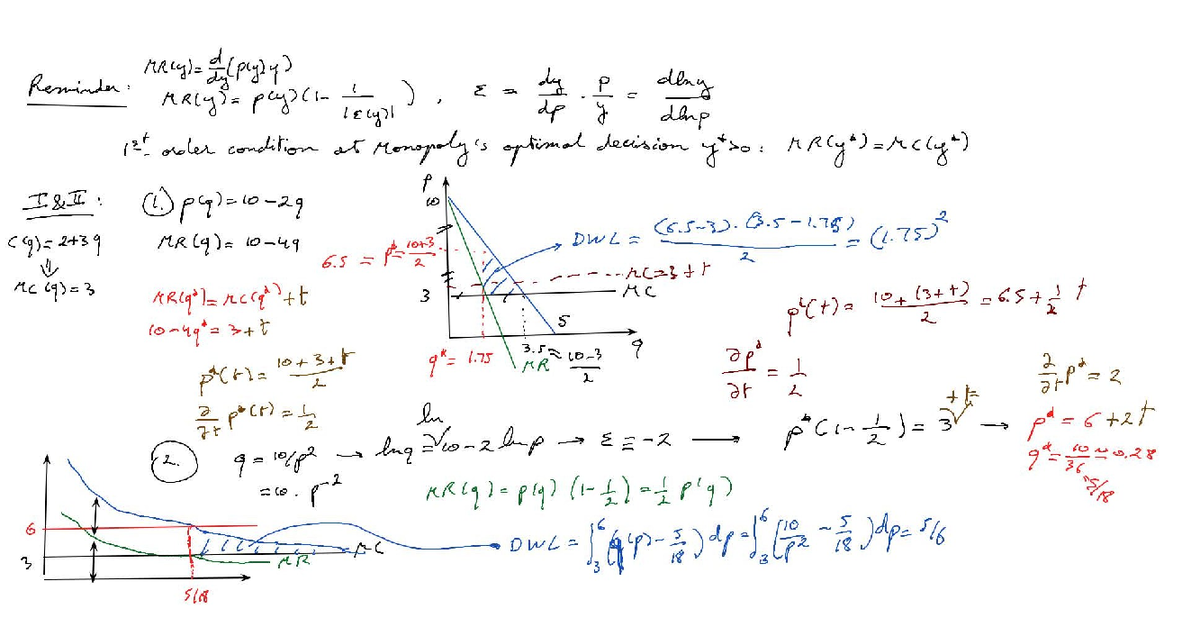 MR(y) = d/dy (p(y)y)
Reminder: MR(y) = p(y)(1 - 1/|ε(y)|), ε = dy/dp · p/y = dlny/dlnp
1st-order condition at Monopoly's optimal decision y*>0: MR(y*) = MC(y*)
I & II:
C(q) = 2+3q
⇓
MC(q) = 3
1. p(q) = 10-2q
MR(q) = 10-4q
MR(q*) = MC(q*) + t
10-4q* = 3+t
p*(t) = (10+3+t)/2
∂/∂t p*(t) = 1/2
p
10
6.5 = p* = (10+3)/2
3
q* = 1.75
3.5 = (10-3)/2
5
q
MR
MC = 3+t
MC
DWL = (6.5-3)·(3.5-1.75)/2 = (1.75)²
p*(t) = (10+(3+t))/2 = 6.5 + 1/2 t
∂p*/∂t = 1/2
2. q = 10/p² → lnq = ln 10 - 2 lnp → ε = -2 → p*(1 - 1/2) = 3 + t → p* = 6 + 2t
= 10·p⁻²
∂/∂t p* = 2
q* = 10/36 ≈ 0.28
= 5/18
MR(q) = p(q)(1 - 1/2) = 1/2 p(q)
6
3
5/18
MR
MC
DWL = ∫₃⁶ (q(p) - 5/18) dp = ∫₃⁶ (10/p² - 5/18) dp = 5/6